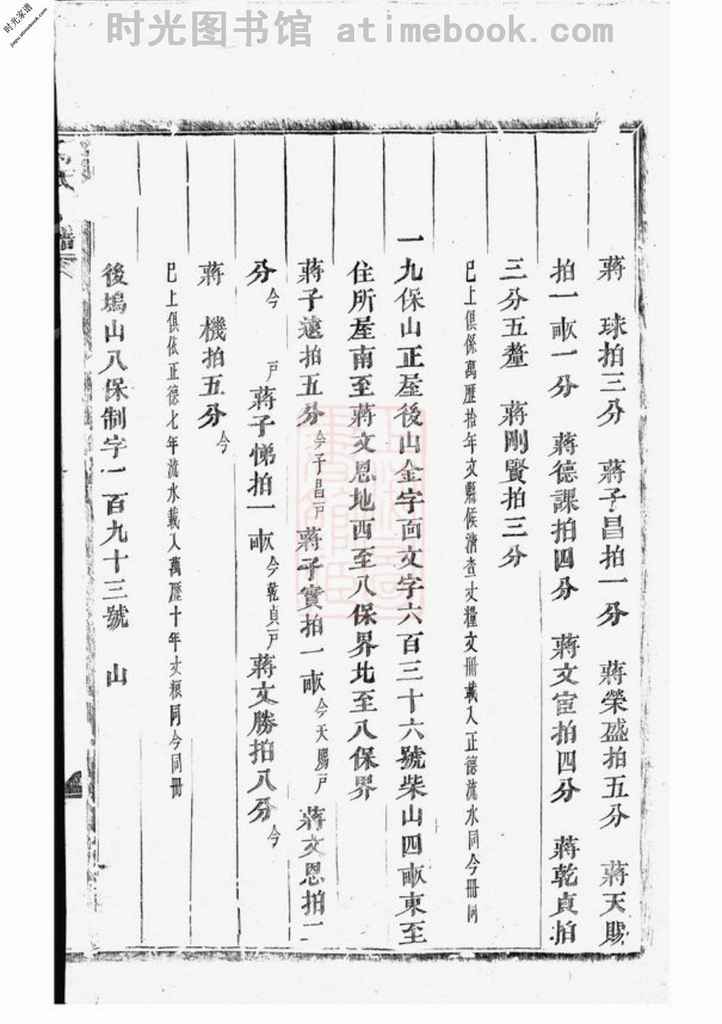 时光图书馆 atimebook.com
时光家谱
jiapu.atimebook.com
蔣　球拍三分　蔣子昌拍一分　蔣榮盛拍五分　蔣天賜
拍一畝一分　蔣德課拍四分　蔣文宦拍四分　蔣乾貞拍
三分五釐　蔣剛賢拍三分
已上俱係萬歷拾年文縣候清查丈糧文冊載入正德流水同今冊同
一九保山正屋後山金字面文字六百三十六號柴山四畝東至
住所屋南至蔣文恩地西至八保界北至八保界
蔣子遠拍五分今子昌戶蔣子實拍一畝今天賜戶蔣文恩拍二
分今　戶蔣子悌拍一畝今乾貞戶蔣文勝拍八分今
蔣　機拍五分今
已上俱依正德七年流水載入萬歷十年丈糧同今同冊
後塢山八保制字一百九十三號　山